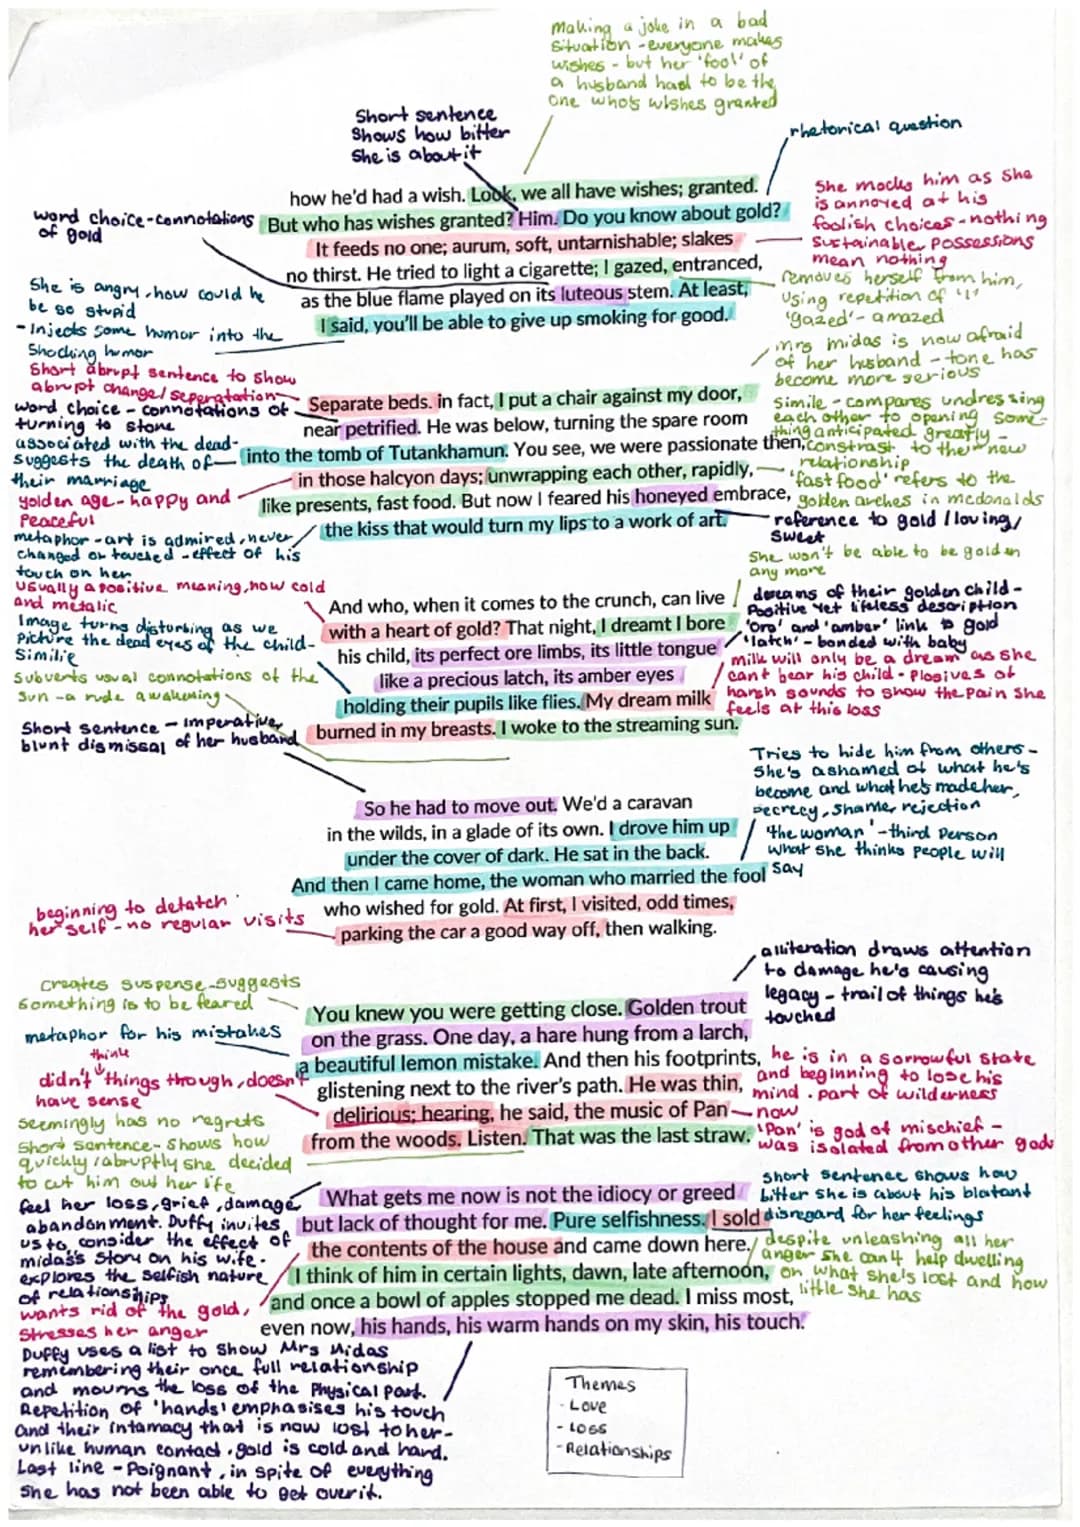 making a joke in a bad
situation - everyone makes
wishes - but her 'fool' of
a husband had to be the
one who's wishes granted
Short sentence
shows how bitter
she is about it
rhetorical question
how he'd had a wish. Look, we all have wishes; granted.
But who has wishes granted? Him. Do you know about gold?
It feeds no one; aurum, soft, untarnishable; slakes
no thirst. He tried to light a cigarette; I gazed, entranced,
as the blue flame played on its luteous stem. At least,
I said, you'll be able to give up smoking for good.
word choice - connotations
of gold
She is angry, how could he
be so stupid
- Injects some humor into the
shocking humor
She mocks him as she
is annoyed at his
foolish choices - nothing
sustainable, possessions
mean nothing
removes herself from him,
using repetition of 'I'
'gazed' - amazed
mrs midas is now afraid
of her husband - tone has
become more serious
Short abrupt sentence to show
abrupt change/seperatation
word choice - connotations of
turning to stone
associated with the dead -
suggests the death of
their marriage
golden age - happy and
Peaceful
metaphor - art is admired, never
changed or touched - effect of his
touch on her
Separate beds. in fact, I put a chair against my door,
near petrified. He was below, turning the spare room
into the tomb of Tutankhamun. You see, we were passionate then,
in those halcyon days; unwrapping each other, rapidly,
like presents, fast food. But now I feared his honeyed embrace,
the kiss that would turn my lips to a work of art.
Simile - compares undressing
each other to opening some-
thing anticipated greatly -
constrast to their new
relationship
'fast food' refers to the
golden arches in mcdonalds
reference to gold / loving/
sweet
She won't be able to be golden
any more
usually a positive meaning, now cold
and metalic
Image turns disturbing as we
Picture the dead eyes of the child -
Similie
Subverts usual connotations of the
sun - a rude awakening
Short sentence - imperative,
blunt dismissal of her husband
And who, when it comes to the crunch, can live
with a heart of gold? That night, I dreamt I bore
his child, its perfect ore limbs, its little tongue
like a precious latch, its amber eyes
holding their pupils like flies. My dream milk
burned in my breasts. I woke to the streaming sun.
dreams of their golden child -
Positive yet lifeless description
'Oro' and 'amber' link to gold
'latch' - bonded with baby
milk will only be a dream as she
cant bear his child - Plosives of
harsh sounds to show the pain she
feels at this loss
So he had to move out. We'd a caravan
in the wilds, in a glade of its own. I drove him up
under the cover of dark. He sat in the back.
And then I came home, the woman who married the fool
who wished for gold. At first, I visited, odd times,
parking the car a good way off, then walking.
Tries to hide him from others -
She's ashamed of what he's
become and what he's made her,
secrecy, shame, rejection
'the woman' - third person
what she thinks people will
say
beginning to detatch
herself - no regular visits
alliteration draws attention
to damage he's causing
legacy - trail of things he's
touched
creates suspense - suggests
something is to be feared
metaphor for his mistakes
think
didn't things through, doesn't
have sense
seemingly has no regrets
Short sentence - shows how
quickly / abruptly she decided
to cut him out her life
You knew you were getting close. Golden trout
on the grass. One day, a hare hung from a larch,
a beautiful lemon mistake. And then his footprints,
glistening next to the river's path. He was thin,
delirious; hearing, he said, the music of Pan
from the woods. Listen. That was the last straw.
he is in a sorrowful state
and beginning to lose his
mind. part of wilderness
now
'Pan' is god of mischief -
was isolated from other gods
feel her loss, grief, damage,
abandonment. Duffy invites
us to consider the effect of
midas's story on his wife.
explores the selfish nature
of relationships
wants rid of the gold,
stresses her anger
What gets me now is not the idiocy or greed
but lack of thought for me. Pure selfishness. I sold
the contents of the house and came down here.
I think of him in certain lights, dawn, late afternoon,
and once a bowl of apples stopped me dead. I miss most,
even now, his hands, his warm hands on my skin, his touch.
short sentence shows how
bitter she is about his blatant
disregard for her feelings
despite unleashing all her
anger she can't help dwelling
on what she's lost and how
little she has
Duffy uses a list to show Mrs Midas
remembering their once full relationship
and mourns the loss of the Physical part.
Repetition of 'hands' emphasises his touch
and their intamacy that is now lost to her -
unlike human contact. gold is cold and hard.
Last line - Poignant, in spite of everything
she has not been able to get over it.
Themes
- Love
- Loss
- Relationships